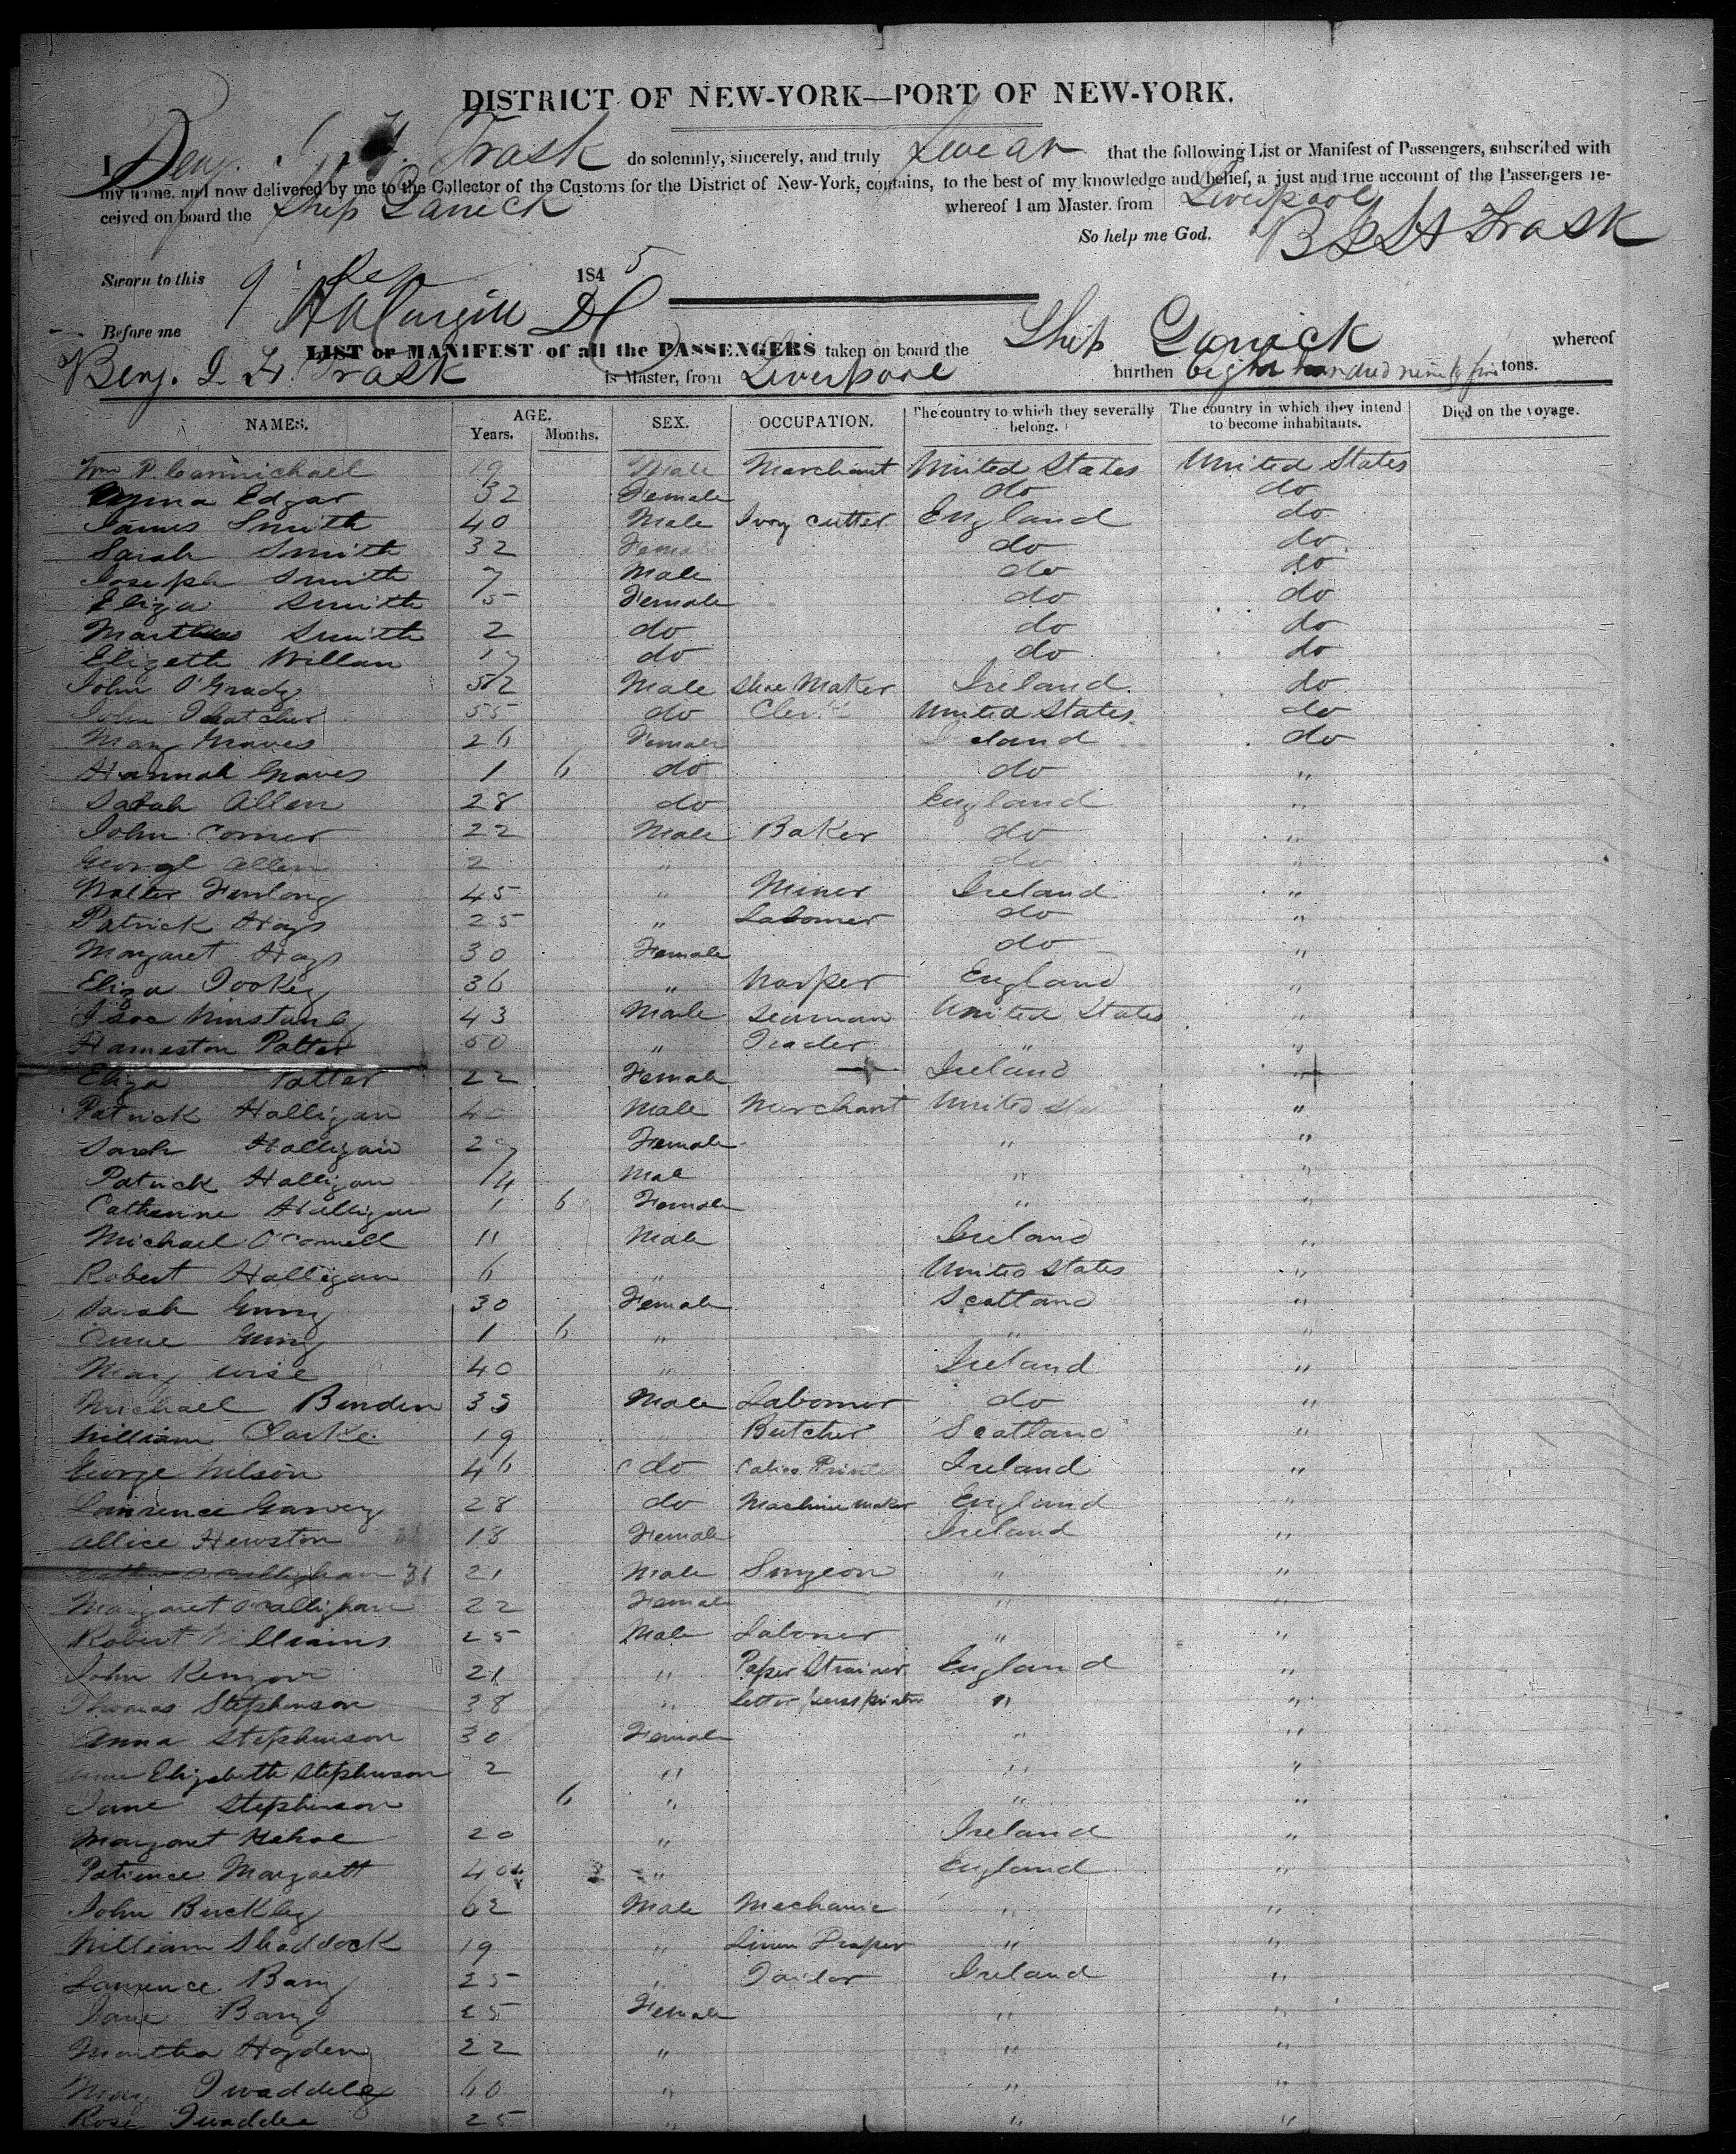 DISTRICT OF NEW-YORK—PORT OF NEW-YORK.
I Benj. Trask do solemnly, sincerely, and truly swear that the following List or Manifest of Passengers, subscribed with
my name, and now delivered by me to the Collector of the Customs for the District of New-York, contains, to the best of my knowledge and belief, a just and true account of the Passengers re-
ceived on board the Ship Garrick whereof I am Master, from Liverpool
So help me God. B I H Trask
Sworn to this 9 Sep 1845
Before me
LIST or MANIFEST of all the PASSENGERS taken on board the Ship Garrick whereof
Benj. I. H. Trask is Master, from Liverpool burthen Eight hundred ninety five tons.
NAMES. AGE. Years. Months. SEX. OCCUPATION. The country to which they severally belong. The country in which they intend to become inhabitants. Died on the voyage.
Wm P. Carmichael 19 Male Merchant United States United States
Emma Edgar 32 Female do do
James Smith 40 Male Ivory cutter England do
Sarah Smith 32 Female do do
Joseph Smith 7 Male do do
Eliza Smith 5 Female do do
Smith 2 do do do
Elizeth Willan 17 do do do
John O'Grady 52 Male Shoe Maker Ireland do
John Thatcher 55 do Clerk United States do
Mary Graves 26 Female Ireland do
Hannah Graves 1 6 do do "
Sarah Allen 28 do England "
John Comer 22 Male Baker do "
George Allen 2 " do "
Walter Furlong 45 " Miner Ireland "
Patrick Hays 25 " Labourer do "
Margaret Hays 30 Female do "
Eliza Tookey 36 " England "
Isac 43 Male Seaman United States "
Hameston Potter 50 " Trader " "
Eliza Potter 22 Female Ireland "
Patrick Halligan 40 Male Merchant United Sta "
Sarah Halligan 27 Female " "
Patrick Halligan 14 Mal " "
Catherine Halligan 1 6 Female " "
Michael O'Connell 11 Male Ireland "
Robert Halligan 6 " United States "
Sarah 30 Female Scotland "
Anne 1 6 " " "
Mary Wise 40 " Ireland "
Michael 33 Male Labourer do "
William Clarke 19 " Butcher Scotland "
George Nelson 46 do Calico Printer Ireland "
Lawrence Garvey 28 do Machine maker England "
Allice Hewston 18 Female Ireland "
O'Callighan 31 21 Male Surgeon " "
Margaret O'Callighan 22 Female " "
Robert Williams 25 Male Labourer " "
John 21 " Paper Strainer England "
Thomas Stephenson 38 " Letter press printer " "
Anna Stephenson 30 Female " "
Elizabeth Stephenson 2 " " "
Jane Stephenson 6 " " "
Margaret Kehoe 20 " Ireland "
Patience Margaett 40 " England "
John Buckley 62 Male Mechanic " "
William Shaddock 19 " Linen Draper " "
Lawrence Barry 25 " Tailor Ireland "
Jane Barry 25 Female " "
Martha Hayden 22 " " "
Mary Twaddele 60 " " "
Rose Twaddle 25 " " "